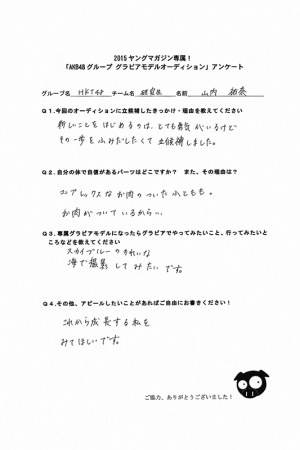 2015 ヤングマガジン専属!
「AKB48グループ グラビアモデルオーディション」アンケート
グループ名 HKT48 チーム名 研究生 名前 山内 祐奈
Q1.今回のオーディションに立候補したきっかけ・理由を教えてください
新しいことをはじめるのは、とても勇気がいるけど
その一歩をふみだしたくて立候補しました。
Q2.自分の体で自信があるパーツはどこですか? また、その理由は?
コンプレックスなお肉のついたふともも。
お肉がついているから…
Q3.専属グラビアモデルになったらグラビアでやってみたいこと、行ってみたいと
ころなどを教えてください
スカイブルーのきれいな
海で撮影してみたいです。
Q4.その他、アピールしたいことがあればご自由にお書きください!
これから成長する私を
みてほしいです。
ご協力、ありがとうございました!